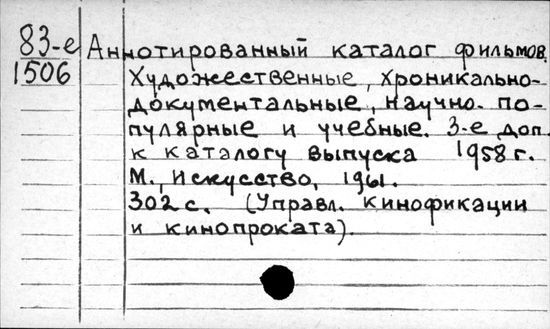 83-е Аннотированный каталог фильмов.
1506 Художественные, хроникально-
документальные, научно-по-
пулярные и учебные. 3-е доп.
к каталогу выпуска 1958 г.
М., Искусство, 1961.
302 с. (Управл. кинофикации
и кинопроката).